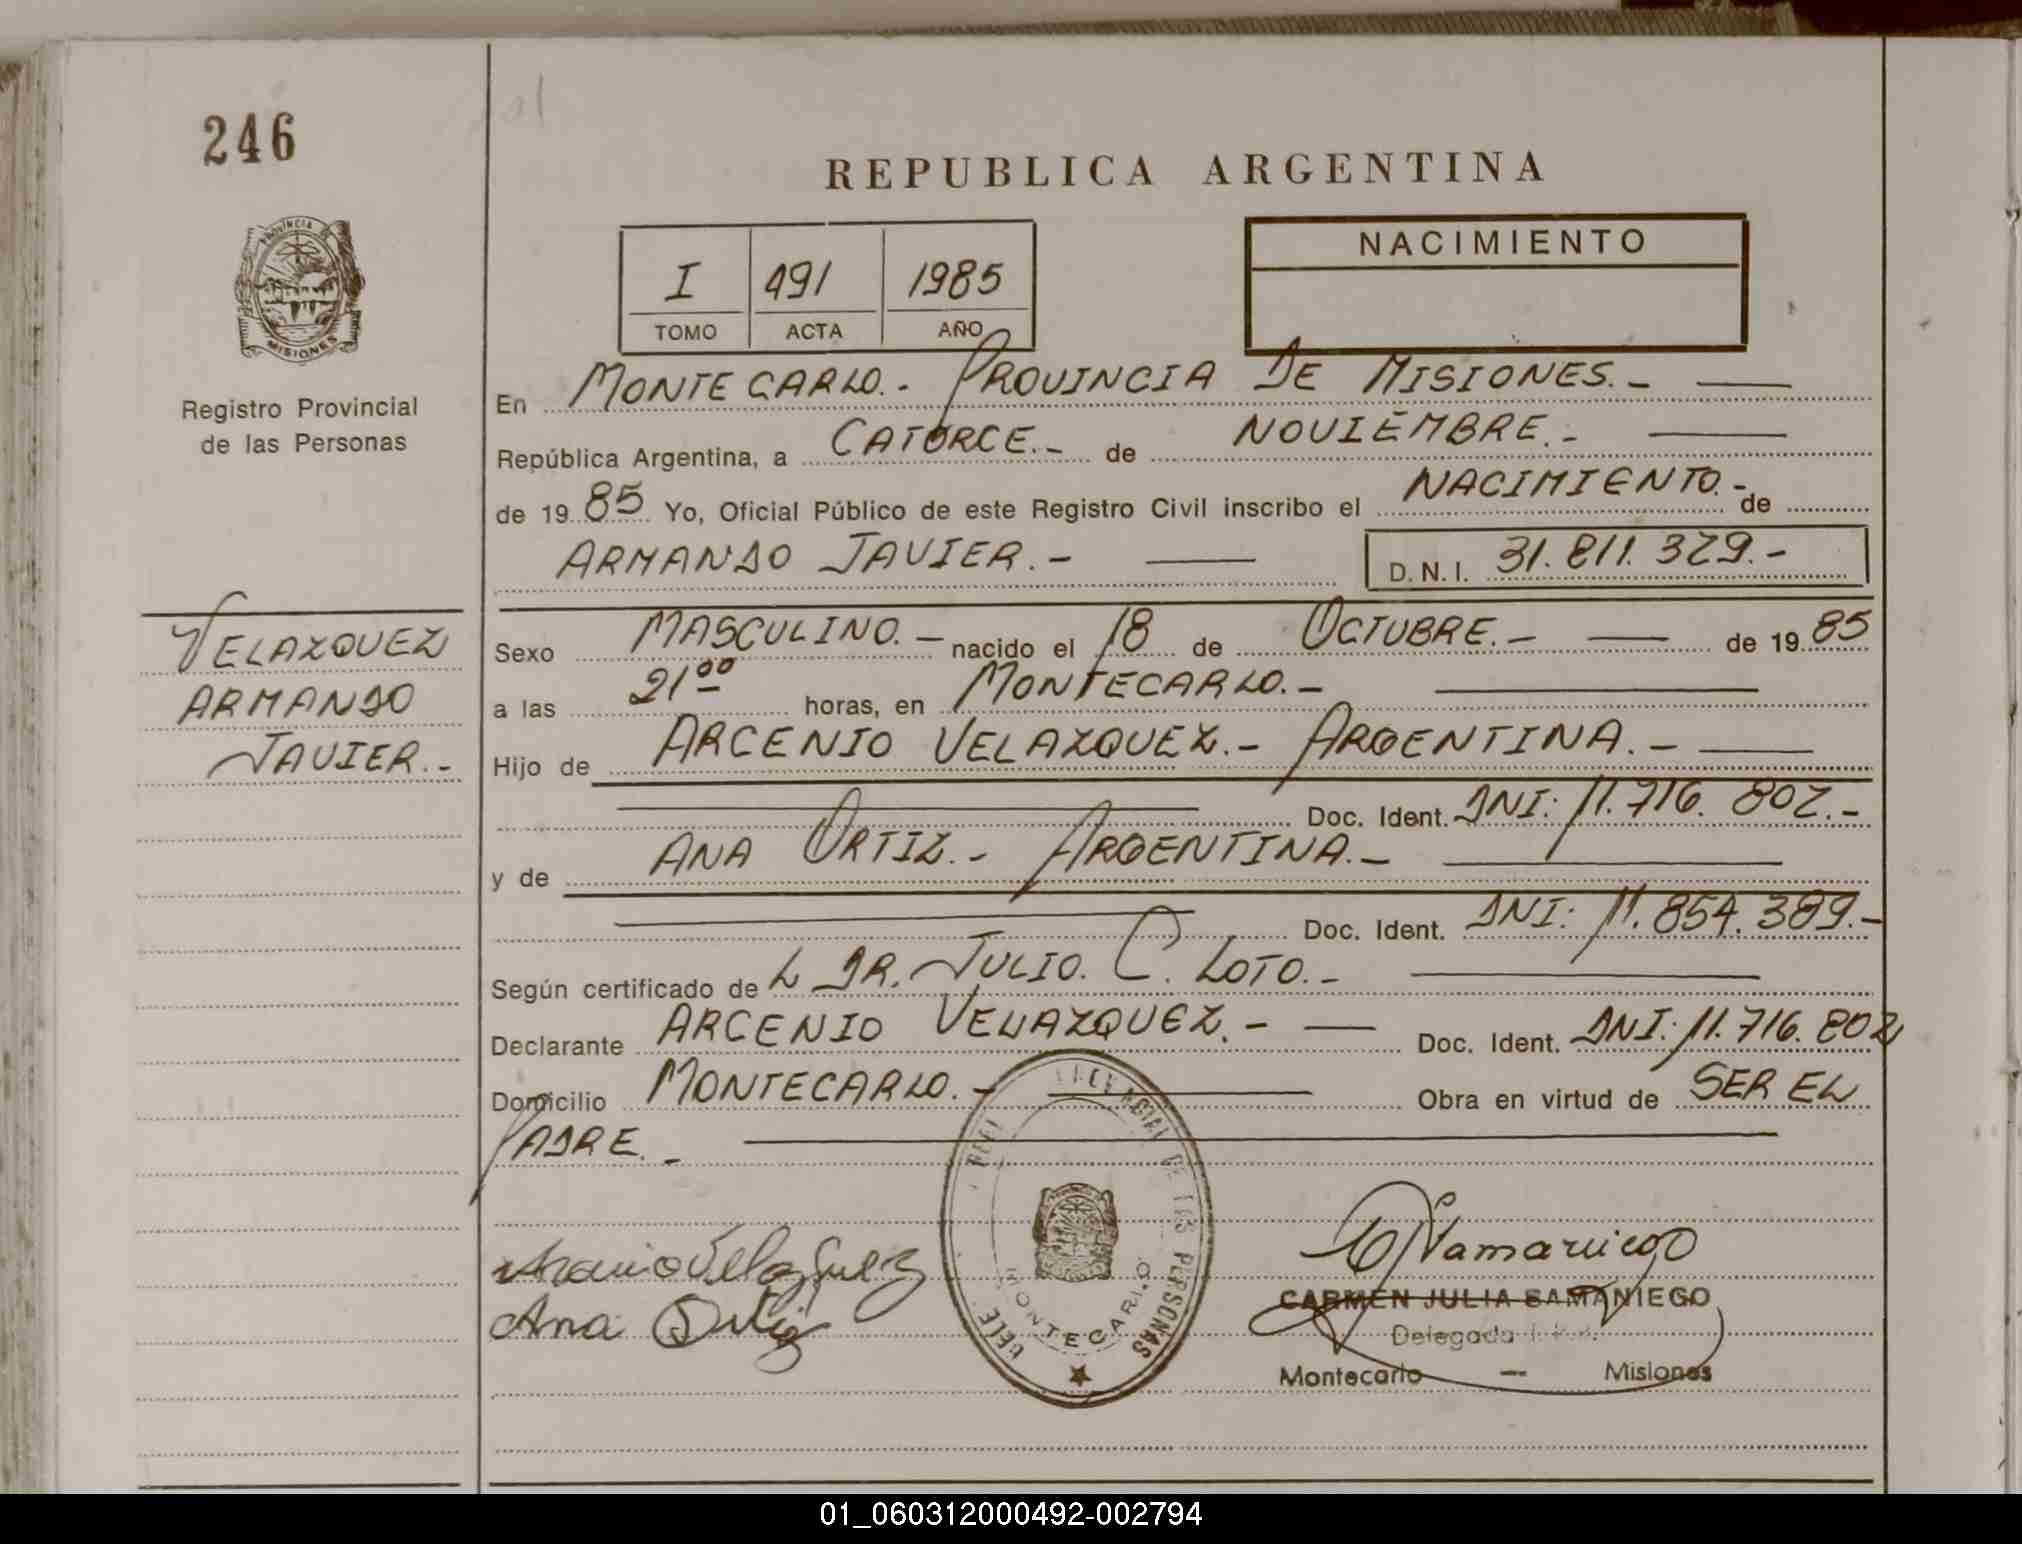 246
REPUBLICA ARGENTINA
PROVINCIA DE
MISIONES
I 491 1985
TOMO ACTA AÑO
NACIMIENTO
Registro Provincial
de las Personas
En MONTECARLO.- PROVINCIA DE MISIONES.-
República Argentina, a CATORCE.- de NOVIEMBRE.-
de 1985 Yo, Oficial Público de este Registro Civil inscribo el NACIMIENTO.- de
ARMANDO JAVIER.- D.N.I. 31.811.329.-
VELAZQUEZ
ARMANDO
JAVIER.-
Sexo MASCULINO.- nacido el 18 de OCTUBRE.- de 1985
a las 21⁰⁰ horas, en MONTECARLO.-
Hijo de ARCENIO VELAZQUEZ.- ARGENTINA.-
Doc. Ident. DNI: 11.716.802.-
y de ANA ORTIZ.- ARGENTINA.-
Doc. Ident. DNI: 11.854.389.-
Según certificado de L DR. JULIO. C. LOTO.-
Declarante ARCENIO VELAZQUEZ.- Doc. Ident. DNI: 11.716.802
Domicilio MONTECARLO.- Obra en virtud de SER EL
PADRE.-
Arcenio Velazquez
Ana Ortiz
DE LAS PERSONAS
MONTECARLO
CJSamaniego
CARMEN JULIA SAMANIEGO
Delegada
Montecarlo — Misiones
01_060312000492-002794